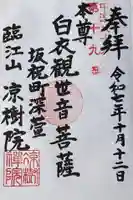 奉拝
令和七年十月十二日
第十九番
本尊
白衣観世音菩薩
坂祝町深萱
臨江山
凉樹院